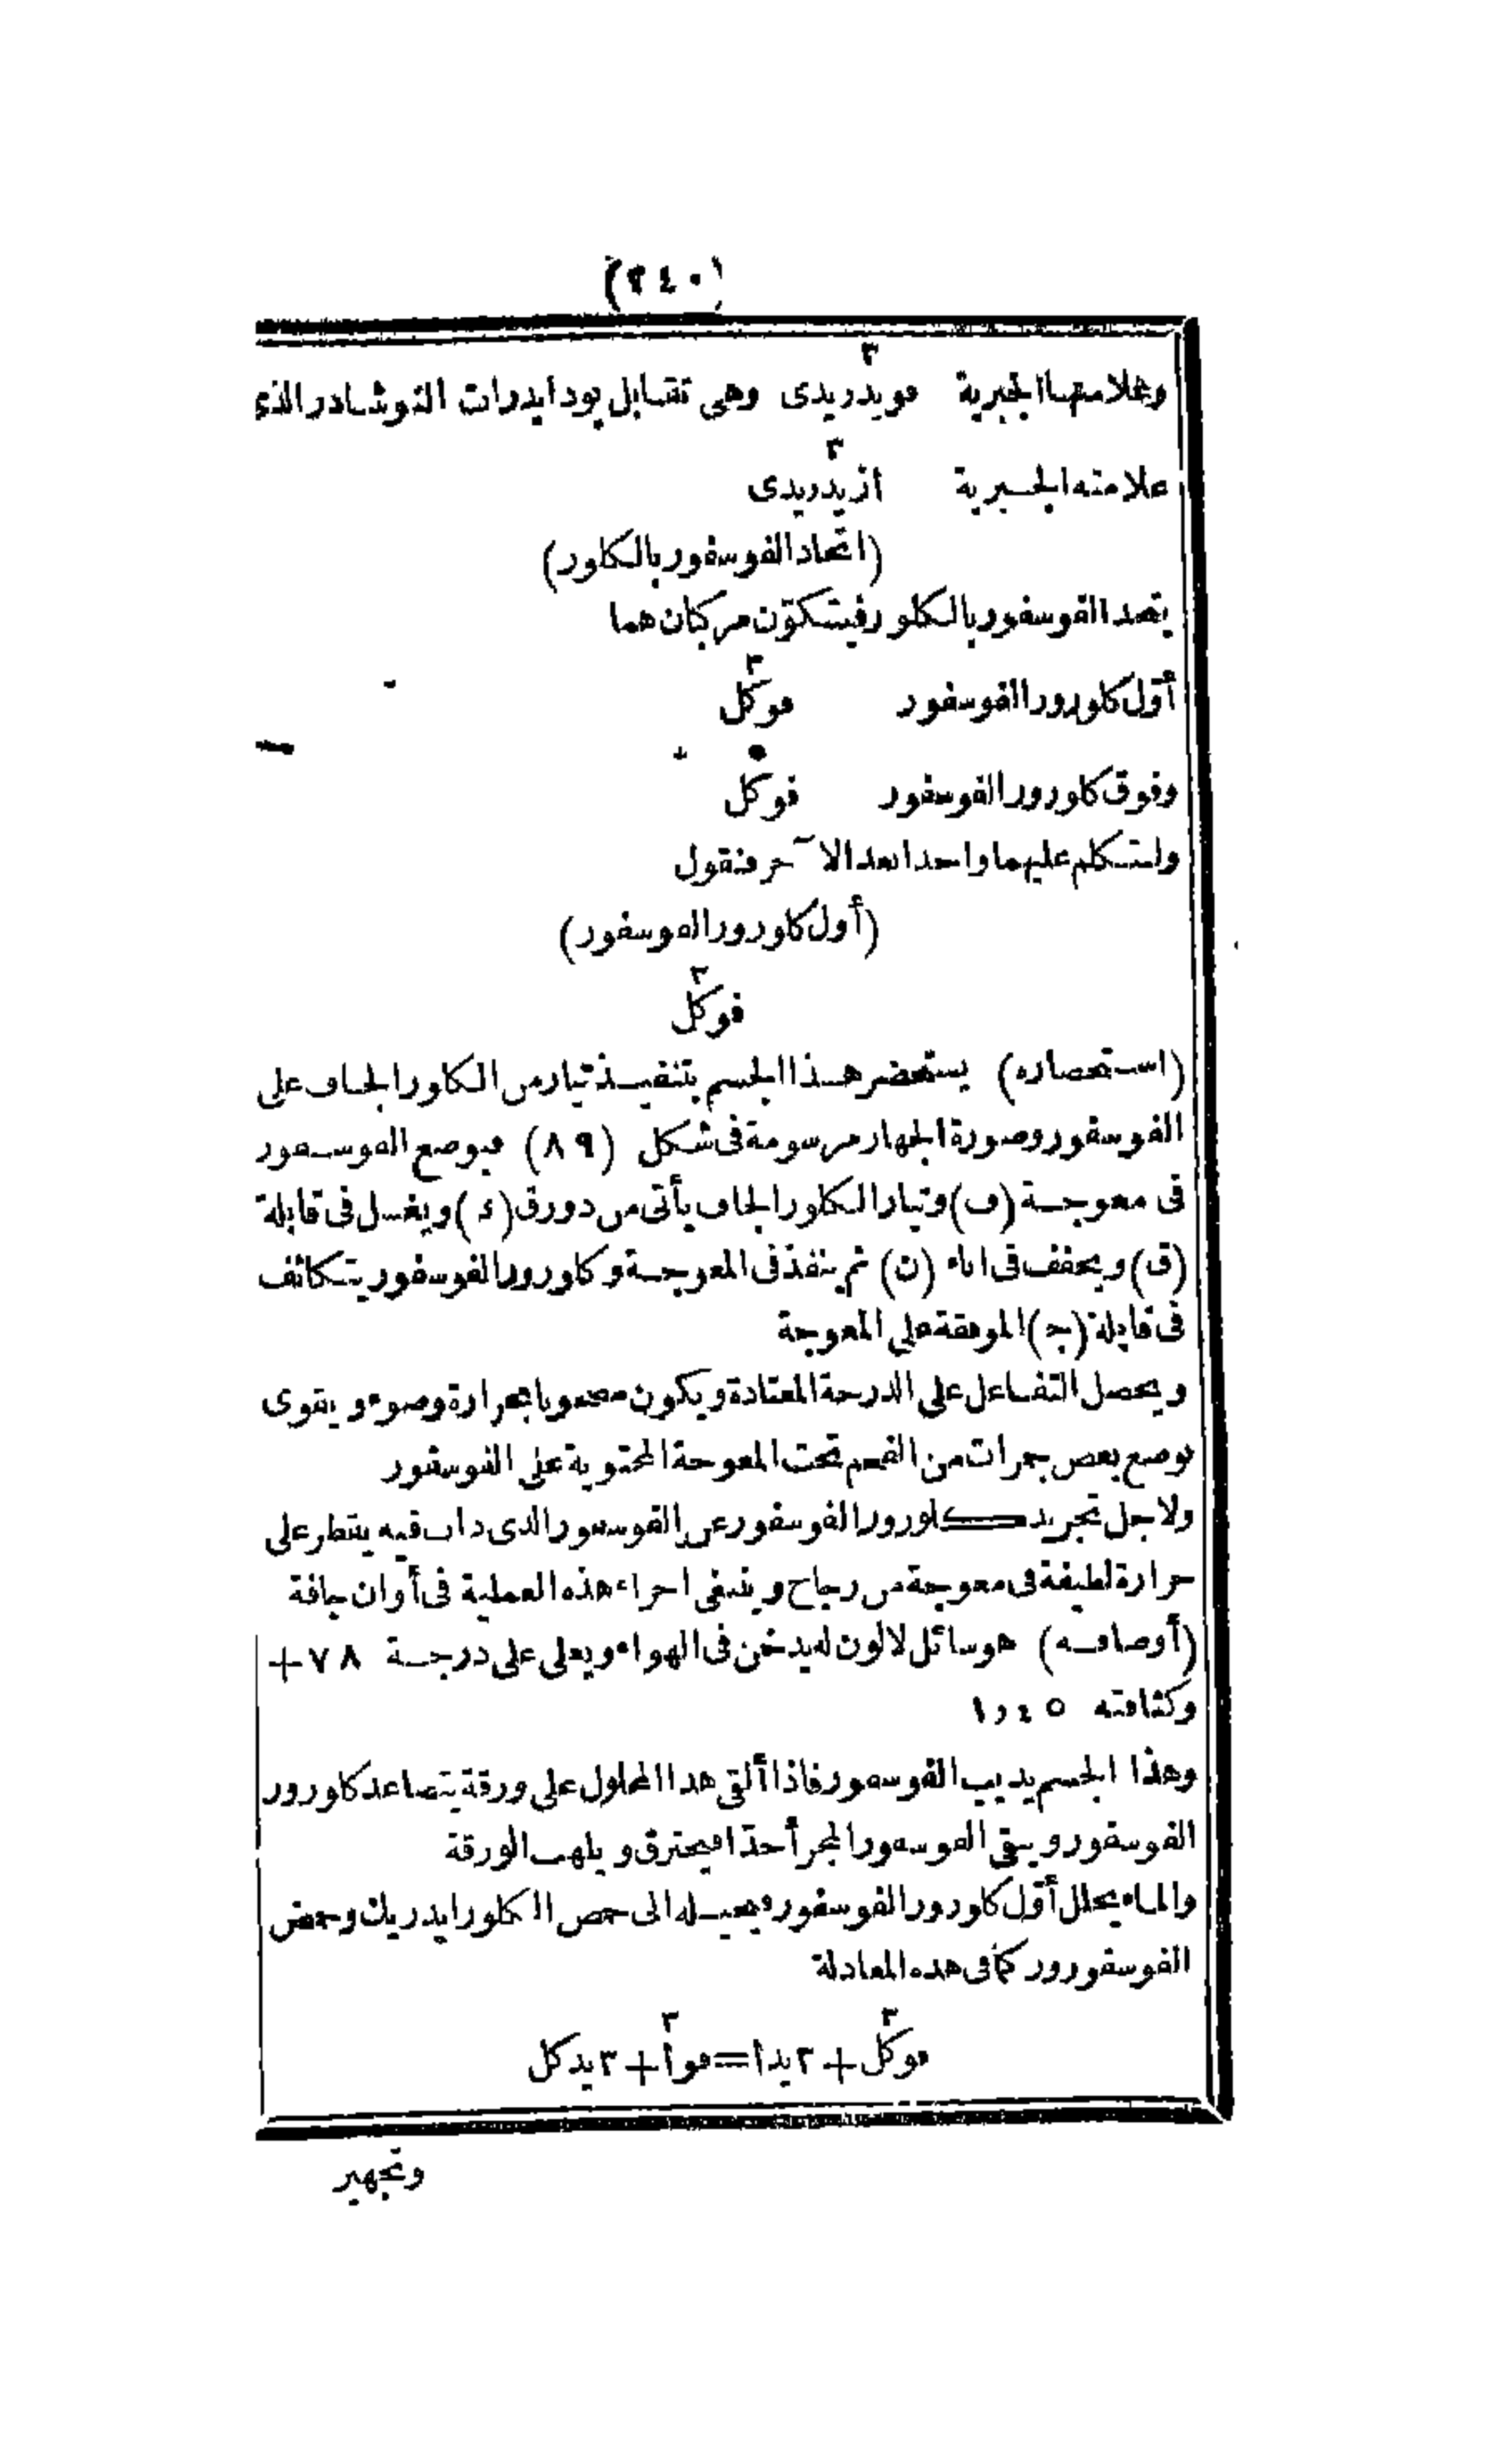 (٢٤٠)
وعلامتها الجبرية فويدريدى وهى تقابل يودايدرات النوشادر الذى
٣
علامته الجبرية ازيدريدى
٣
(اتحاد الفوسفور بالكلور)
يتحد الفوسفور بالكلور فيتكوّن مركبان هما
أوّل كلورور الفوسفور فوكل
٣
وفوق كلورور الفوسفور فوكل
٥
ولنتكلم عليهما واحدا بعد الآخر فنقول
(أول كلورور الفوسفور)
٣
فوكل
(استحضاره) يستحضر هذا الجسم بتنفيذ تيار من الكلور الجاف على
الفوسفور وصورة الجهاز مرسومة فى شكل (٨٩) فيوضع الفوسفور
فى معوجة (ف) وتيار الكلور الجاف يأتى من دورق (ء) ويغسل فى قابلة
(ق) ويجفف فى اناء (ن) ثم ينفذ فى المعوجة وكلورور الفوسفور يتكاثف
فى قابلة (ج) الموفقة على المعوجة
ويحصل التفاعل على الدرجة المعتادة ويكون مصحوبا بحرارة وضوء ويقوى
بوضع بعض جمرات من الفحم تحت المعوجة المحتوية على الفوسفور
ولاجل تجريد كلورور الفوسفور عن الفوسفور الذى ذاب فيه يقطر على
حرارة لطيفة فى معوجة من زجاج وينبغى اجراء هذه العملية فى أوان جافة
(أوصافه) هو سائل لا لون له يدخن فى الهواء ويغلى على درجة ٧٨+
وكثافته ١٫٤٥
وهذا الجسم يذيب الفوسفور فاذا ألقى هذا المحلول على ورقة يتصاعد كلورور
الفوسفور ويبقى الفوسفور المجزأ جدّا فيحترق ويلهب الورقة
والماء يحلل أوّل كلورور الفوسفور فيحيله الى حمض الكلورايدريك وحمض
الفوسفورور كما فى هذه المعادلة
٣ ٣
فوكل + ٣يدا = فوأ + ٣يدكل
وتجهيز